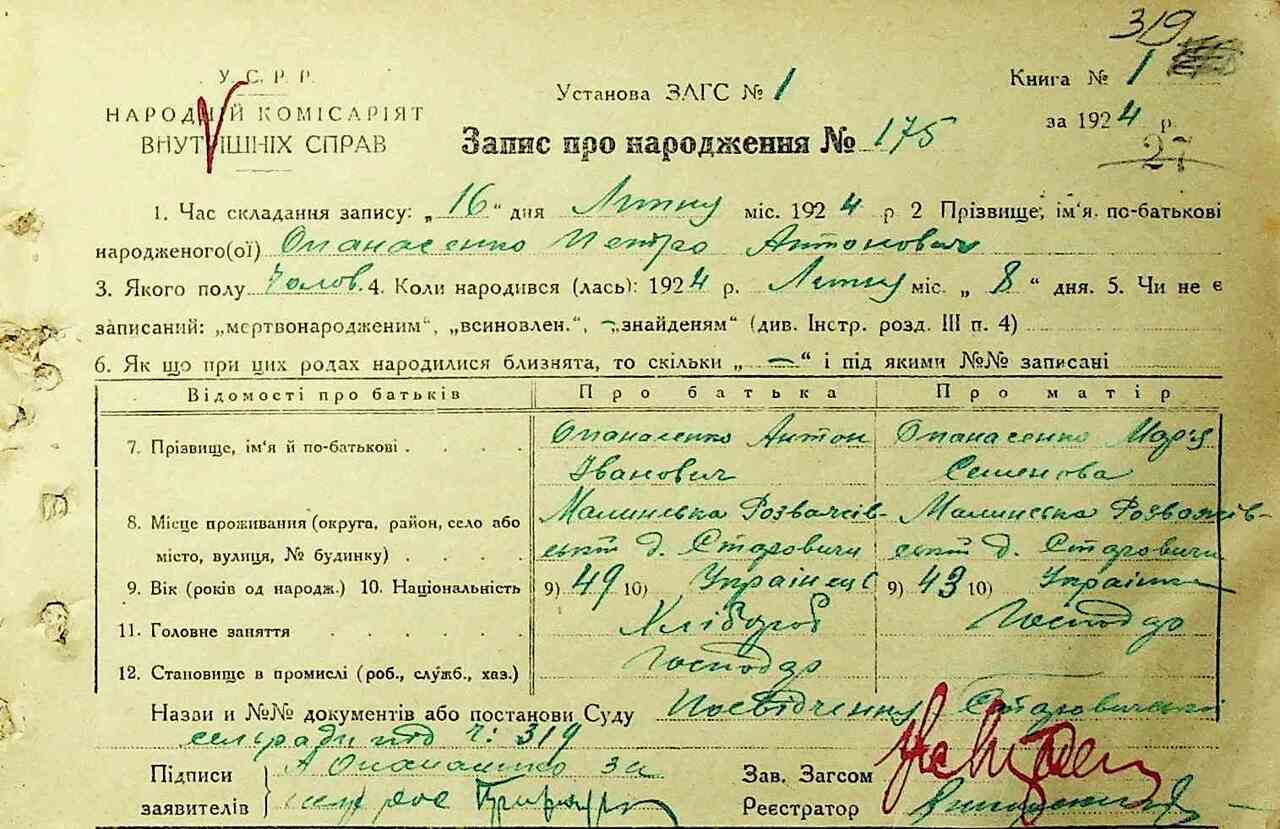 319
У.С.Р.Р.
НАРОДНІЙ КОМІСАРІЯТ
ВНУТРІШНІХ СПРАВ
Установа ЗАГС № 1
Книга № 1
за 1924 р.
27
Запис про народження № 175
1. Час складання запису: „16“ дня Лютну міс. 1924 р 2 Прізвище, ім'я. по-батькові
народженого(ої) Опанасенко Петро Антонович
3. Якого полу Чолов. 4. Коли народився (лась): 1924 р. Лютну міс. „8“ дня. 5. Чи не є
записаний: „мертвонародженим“, „всиновлен.“, „знайденям“ (див. Інстр. розд. III п. 4)
6. Як що при цих родах народилися близнята, то скільки „—“ і під якими №№ записані
Відомості про батьків Про батька Про матір
7. Прізвище, ім'я й по-батькові Опанасенко Антон Іванович Опанасенко Мар'я Семенова
8. Місце проживання (округа, район, село або місто, вулиця, № будинку) Малинська Розважівській д. Старовичи Малинська Розважівській д. Старовичи
9. Вік (років од народж.) 10. Національність 9) 49 10) Українець 9) 43 10) Українка
11. Головне заняття Хлібороб Господар
12. Становище в промислі (роб., служб., хаз.) Господар
Назви и №№ документів або постанови Суду Посвідчення Старовичської
сельради під ч: 319
Підписи заявителів А Опанасенко за
Зав. Загсом
Реєстратор